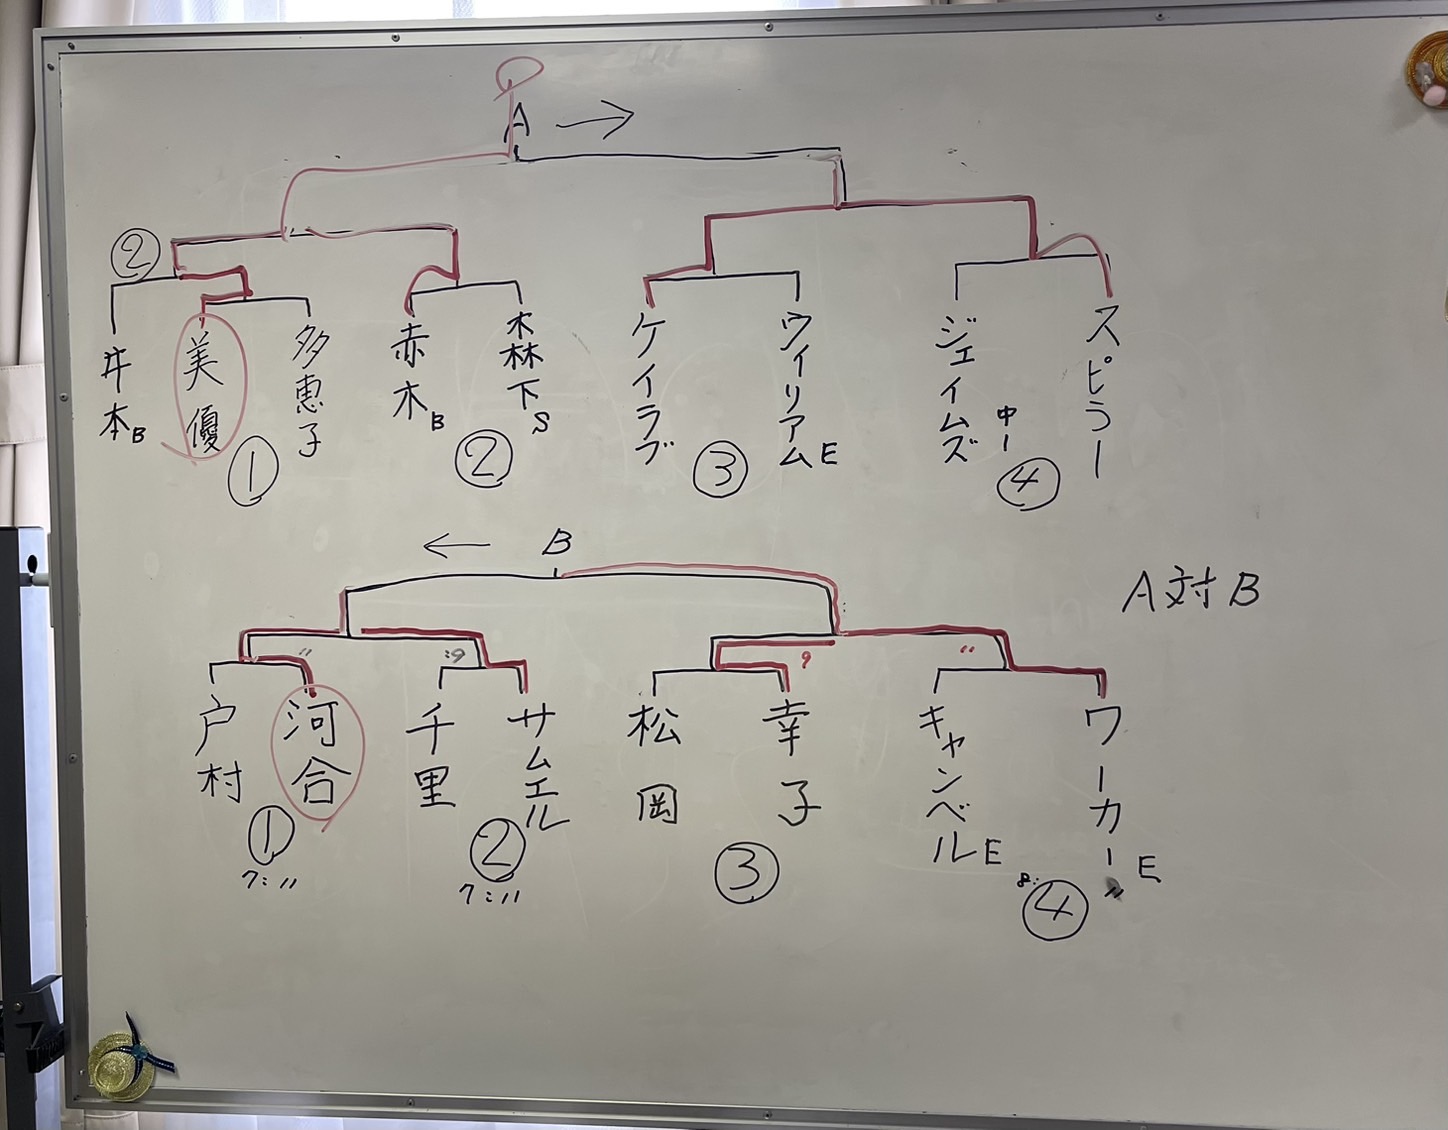 A →
②
井本B
美優
多恵子
①
赤木B
森下S
②
ケイラブ
ウィリアムE
③
ジェイムズ
中1
スピラー
④
← B
A対B
戸村
河合
①
7:11
11
千里
サムエル
②
7:11
:9
松岡
幸子
③
9
キャンベルE
ワーカーE
④
8:
11
11